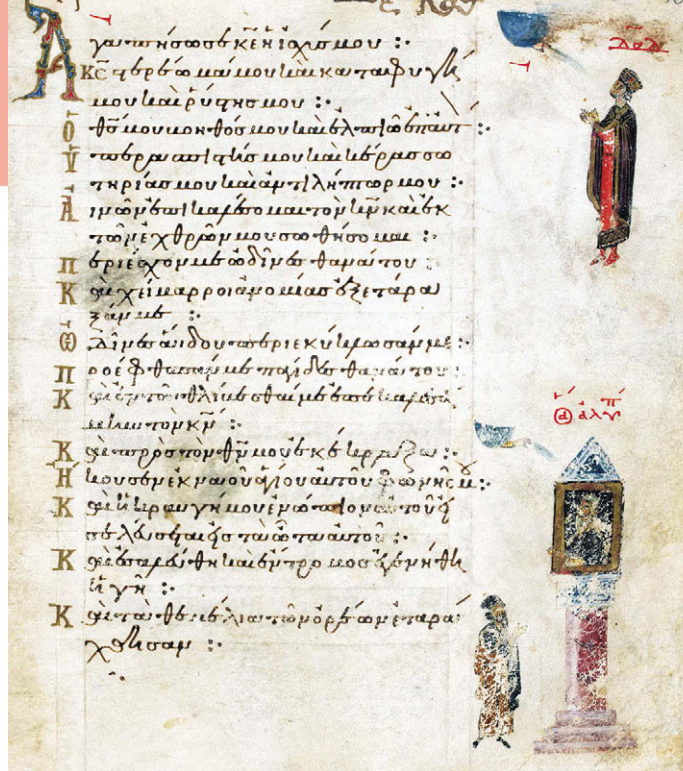 Ἀγαπήσω σε κε ἡ ἰσχύς μου :
Κς στερέωμά μου καὶ καταφυγή
μου καὶ ῥύστης μου :
Ὁ θς μου βοηθός μου καὶ ἐλπιῶ ἐπ αὐτ :
Ὑπερασπιστής μου καὶ κέρας σω
τηρίας μου καὶ ἀντιλήπτωρ μου :
Αἰνῶν ἐπικαλέσομαι τὸν κν καὶ ἐκ
τῶν ἐχθρῶν μου σωθήσομαι :
Περιέσχον με ὠδῖνες θανάτου :
Καὶ χείμαρροι ἀνομίας ἐξετάρα
ξάν με :
Ὠδῖνες ἅδου περιεκύκλωσάν με :
Προέφθασάν με παγίδες θανάτου :
Καὶ ἐν τῶ θλίβεσθαί με ἐπεκαλεσά
μην τὸν κν :
Καὶ πρὸς τὸν θν μου ἐκέκραξα :
Ἤκουσεν ἐκ ναοῦ ἁγίου αὐτοῦ φωνῆς μου :
Καὶ ἡ κραυγή μου ἐνώπιον αὐτοῦ εἰ
σελεύσεται εἰς τὰ ὦτα αὐτοῦ :
Καὶ ἐσαλεύθη καὶ ἔντρομος ἐγενήθη
ἡ γῆ :
Καὶ τὰ θεμέλια τῶν ὀρέων ἐταρά
χθησαν :
δαδ